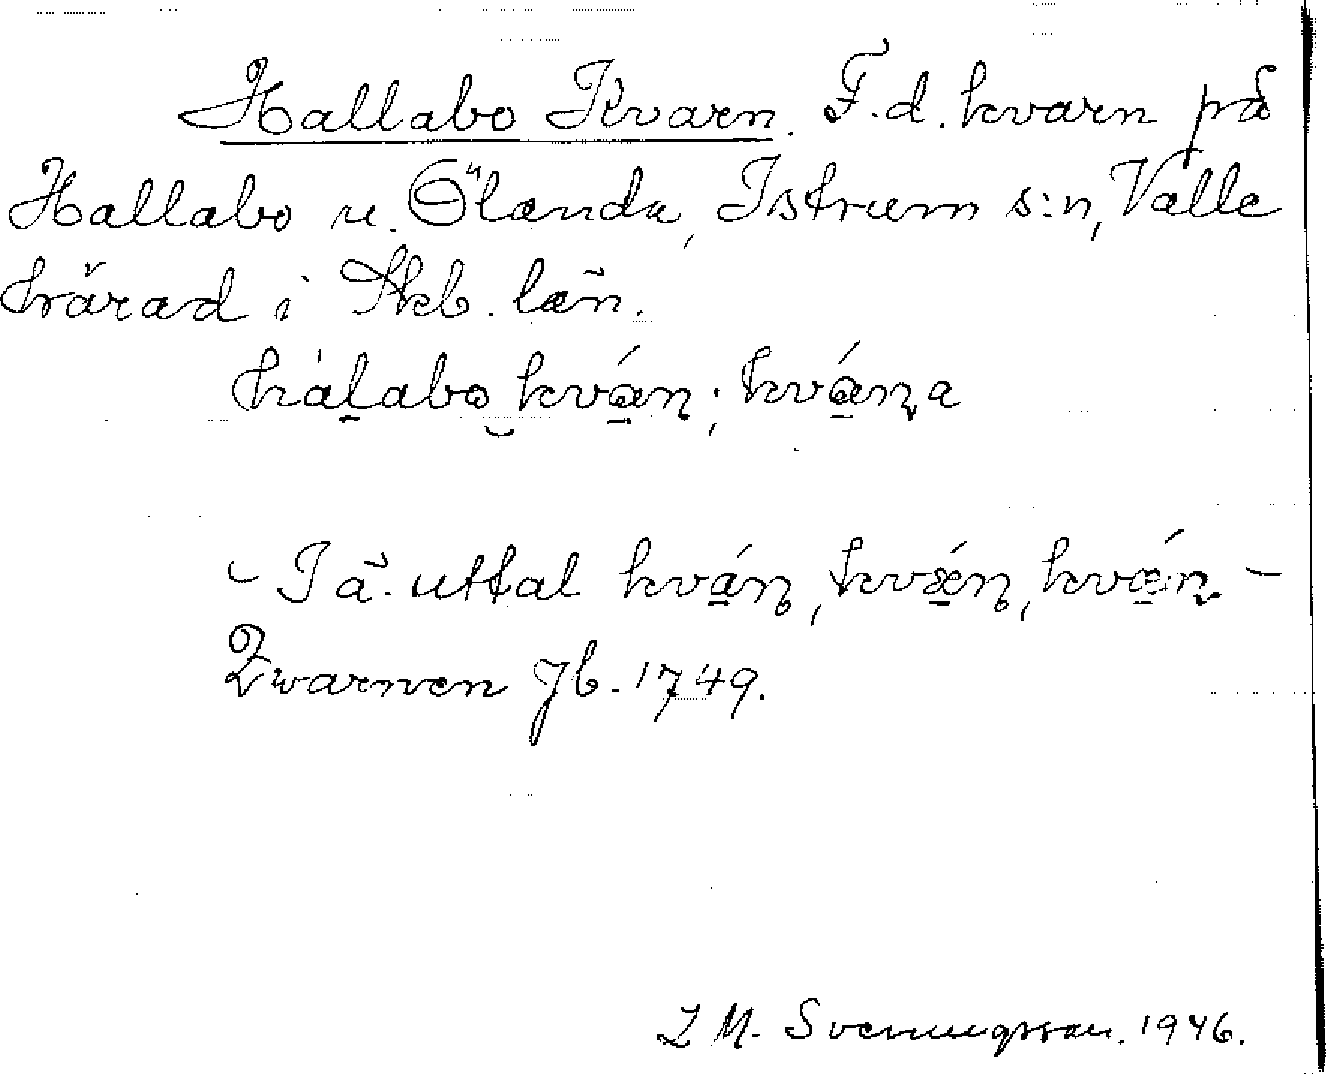 Hallabo Kvarn. F.d. kvarn på
Hallabo u. Ölanda, Istrum s:n, Valle
härad i Skb. län.
hálabo kván; kvána
- I ä. uttal kván, kvǽn, kvǽn -
Qwarnen Jb. 1749.
L M. Svenungsson. 1946.